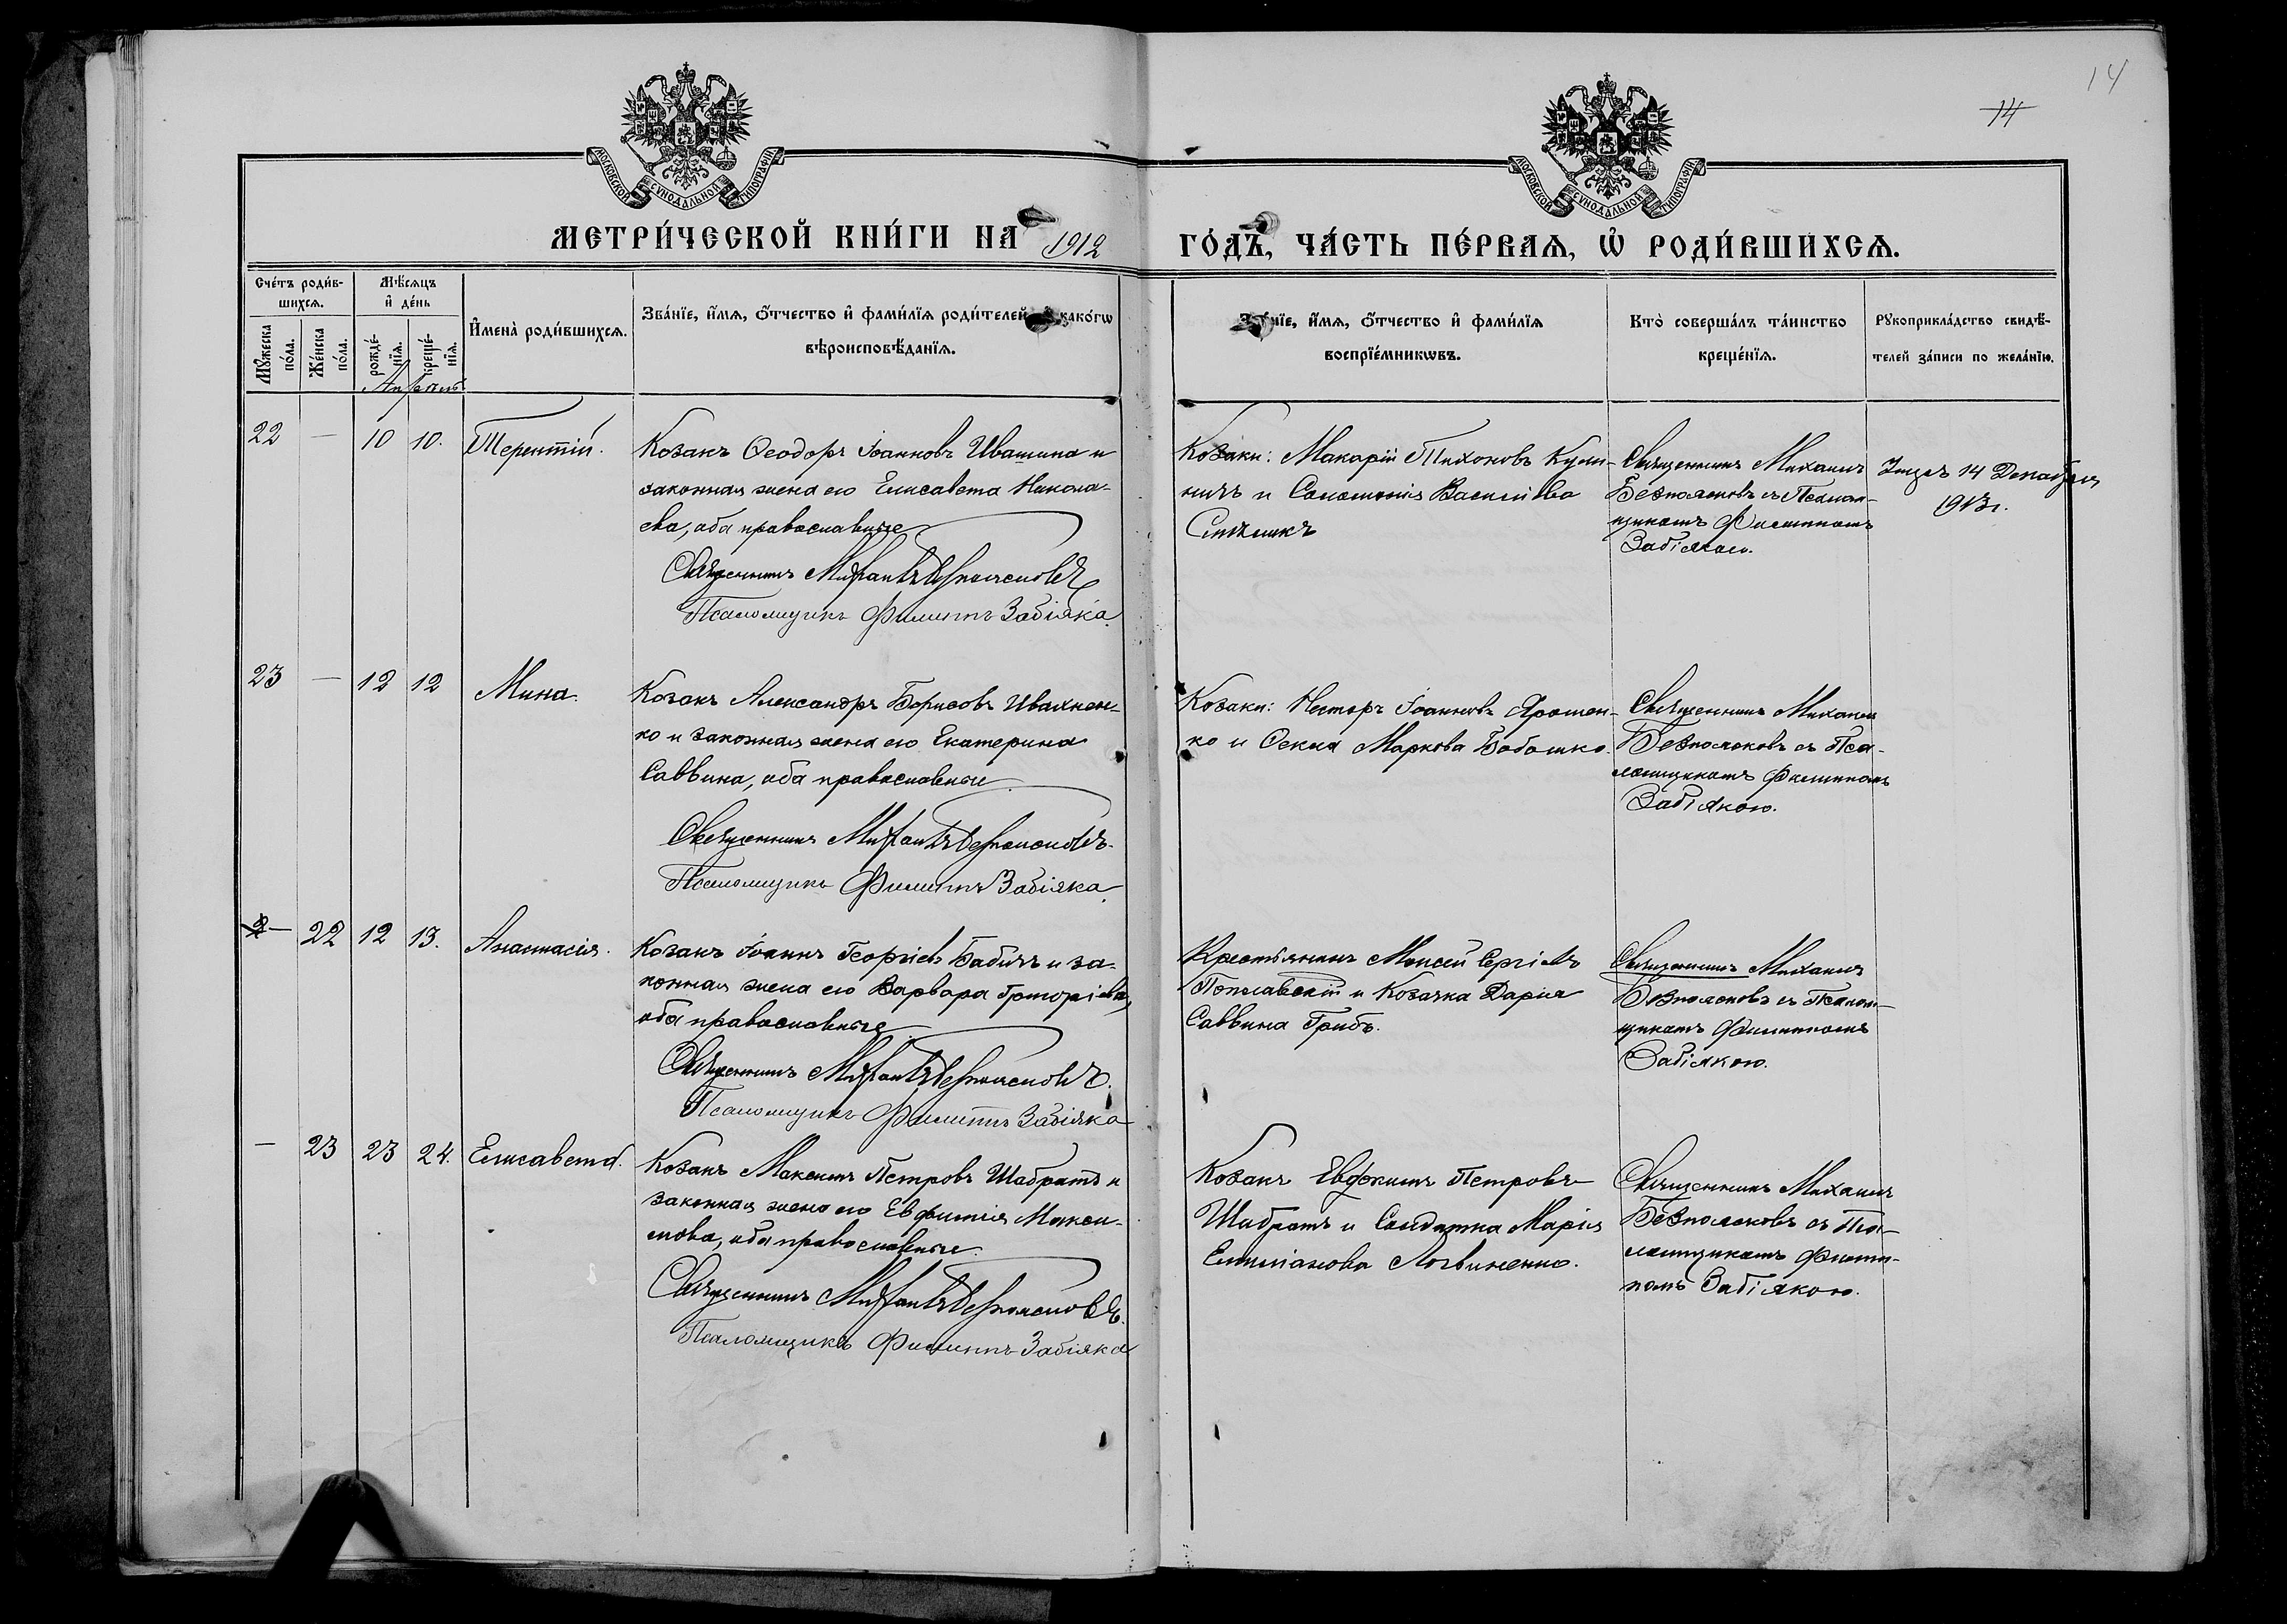 14
14
МОСКОВСКОЙ СУНОДАЛЬНОЙ ТИПОГРАФІИ
МОСКОВСКОЙ СУНОДАЛЬНОЙ ТИПОГРАФІИ
МЕТРИ́ЧЕСКОЙ КНИ́ГИ НА 1912 ГО́ДЪ, ЧА́СТЬ ПЕ́РВАѦ, Ѡ РОДИ́ВШИХСѦ.
Сче́тъ роди́в-
шихсѧ.
Мꙋжеска по́ла.
Же́нска по́ла.
Мѣ́сѧцъ
и҆ де́нь
рожде́-
нїѧ.
креще́-
нїѧ.
И҆мена̀ роди́вшихсѧ.
Зва́нїе, и҆́мѧ, ѻ҆́тчество и҆ фами́лїѧ роди́телей, и҆ како́гѡ
вѣроисповѣ́данїѧ.
Зва́нїе, и҆́мѧ, ѻ҆́тчество и҆ фами́лїѧ
воспрїе́мникѡвъ.
Кто̀ соверша́лъ та́инство
креще́нїѧ.
Рꙋкоприкла́дство свидѣ́-
телей за́писи по жела́нїю.
Апрѣль
22 — 10 10. Терентій.
Козакъ Ѳеодоръ Іоанновъ Ивашина и
законная жена его Елисавета Никола-
ева, оба православные
Священникъ Михаилъ Безпалесновъ
Псаломщикъ Филиппъ Забіяка.
Козаки: Макарій Тихоновъ Кули-
ничъ и Соломонія Васильева
Священникъ Михаилъ
съ Псалом-
щикомъ Филиппомъ
Забіякою.
14 Декабря
1913 г.
23 — 12 12 Мина.
Козакъ Александръ Борисовъ Ивахнен-
ко и законная жена его Екатерина
Саввина, оба православные
Священникъ Михаилъ
Псаломщикъ Филиппъ Забіяка.
Козаки: Несторъ Іоанновъ Ярошен-
ко и Ѳекла Маркова Бабошко.
Священникъ Михаилъ
съ Пса-
ломщикомъ Филиппомъ
Забіякою.
— 22 12 13. Анастасія.
Козакъ Іоаннъ Георгіевъ Бабичъ и за-
конная жена его Варвара Григоріева,
оба православные
Священникъ Михаилъ
Псаломщикъ Филиппъ Забіяка
Крестьянинъ Моисей Сергіевъ
Поплавскій и Козачка Дарія
Саввина Грибъ.
Священникъ Михаилъ
съ Псалом-
щикомъ Филиппомъ
Забіякою.
— 23 23 24. Елисавета.
Козакъ Максимъ Петровъ Шабратъ и
законная жена его Евфимія Макси-
мова, оба православные
Священникъ Михаилъ
Псаломщикъ Филиппъ Забіяка
Козакъ Евфимъ Петровъ
Шабратъ и Солдатка Марія
Емиліанова Логвиненко.
Священникъ Михаилъ
съ Пса-
ломщикомъ Филип-
помъ Забіякою.